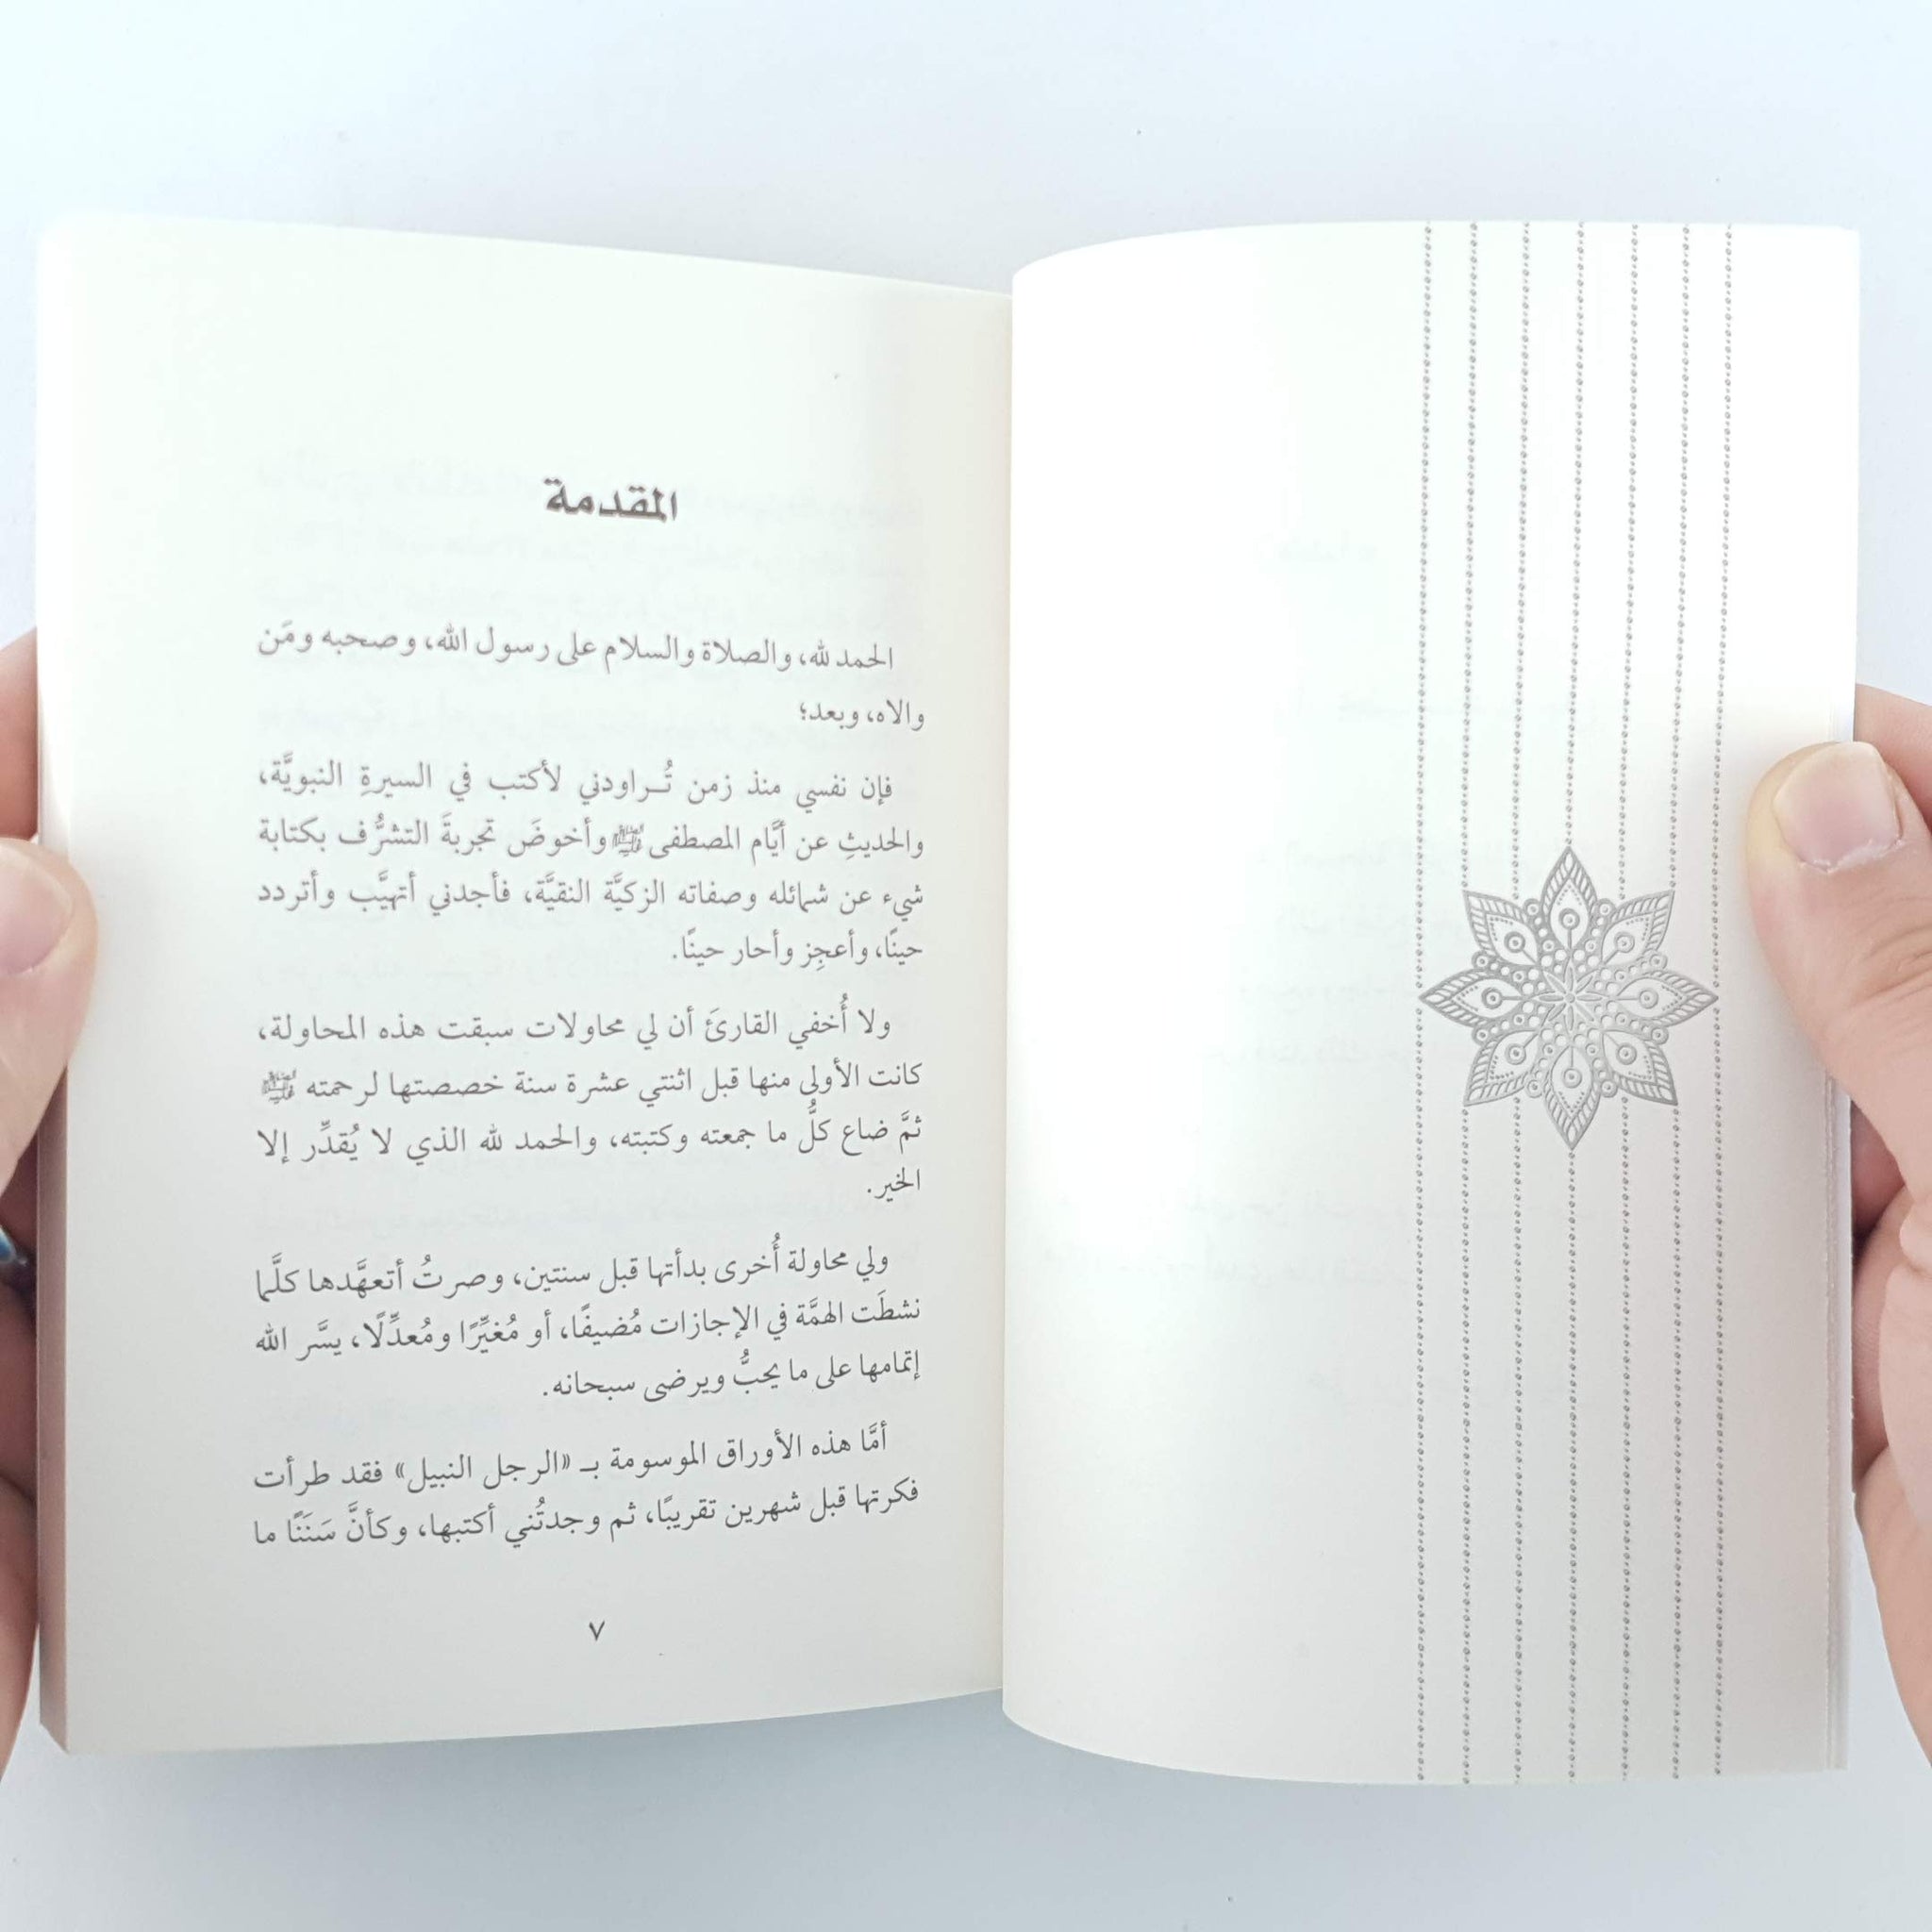 المقدمة
الحمد لله، والصلاة والسلام على رسول الله، وصحبه ومَن
والاه، وبعد؛
فإن نفسي منذ زمن تُـراودني لأكتب في السيرةِ النبويَّة،
والحديثِ عن أيَّام المصطفى ﷺ وأخوضَ تجربةَ التشرُّف بكتابة
شيء عن شمائله وصفاته الزكيَّة النقيَّة، فأجدني أتهيَّب وأتردد
حينًا، وأعجِز وأحار حينًا.
ولا أُخفي القارئَ أن لي محاولات سبقت هذه المحاولة،
كانت الأولى منها قبل اثنتي عشرة سنة خصصتها لرحمته ﷺ
ثمَّ ضاع كلُّ ما جمعته وكتبته، والحمد لله الذي لا يُقدِّر إلا
الخير.
ولي محاولة أُخرى بدأتها قبل سنتين، وصرتُ أتعهَّدها كلَّما
نشطَت الهمَّة في الإجازات مُضيفًا، أو مُغيِّرًا ومُعدِّلًا، يسَّر الله
إتمامها على ما يحبُّ ويرضى سبحانه.
أمَّا هذه الأوراق الموسومة بـ «الرجل النبيل» فقد طرأت
فكرتها قبل شهرين تقريبًا، ثم وجدتُني أكتبها، وكأنَّ سَنَنًا ما
٧